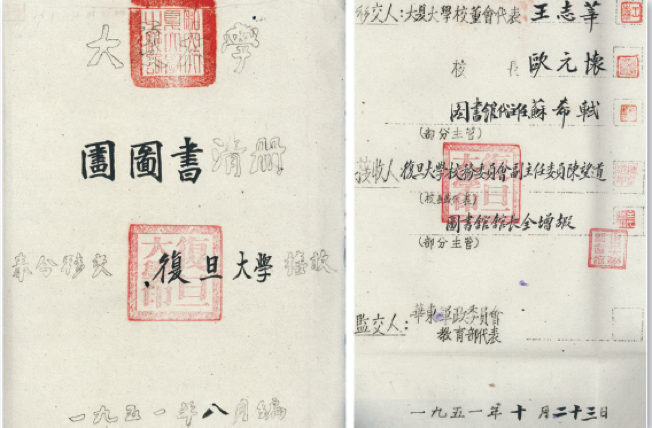 大 學
圖書清册
奉令移交 復旦大學 接收
復旦大學印
一九五一年八月編
移交人:大夏大學校董會代表 王志莘
校 長 歐元懷
図書館代主任蘇希軾
(部分主管)
接收人:復旦大學校務委員會副主任委員陳望道
図書館館長全增嘏
(部分主管)
復旦大學印
監交人:華東軍政委員會
教育部代表
一九五一年十月二十三日